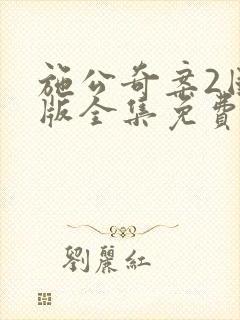 施公奇案2
版全集免費
劉麗紅